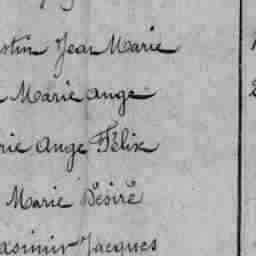 stin Jean Marie
Marie Ange
rie Ange Félix
Marie Désiré
asimir Jacques